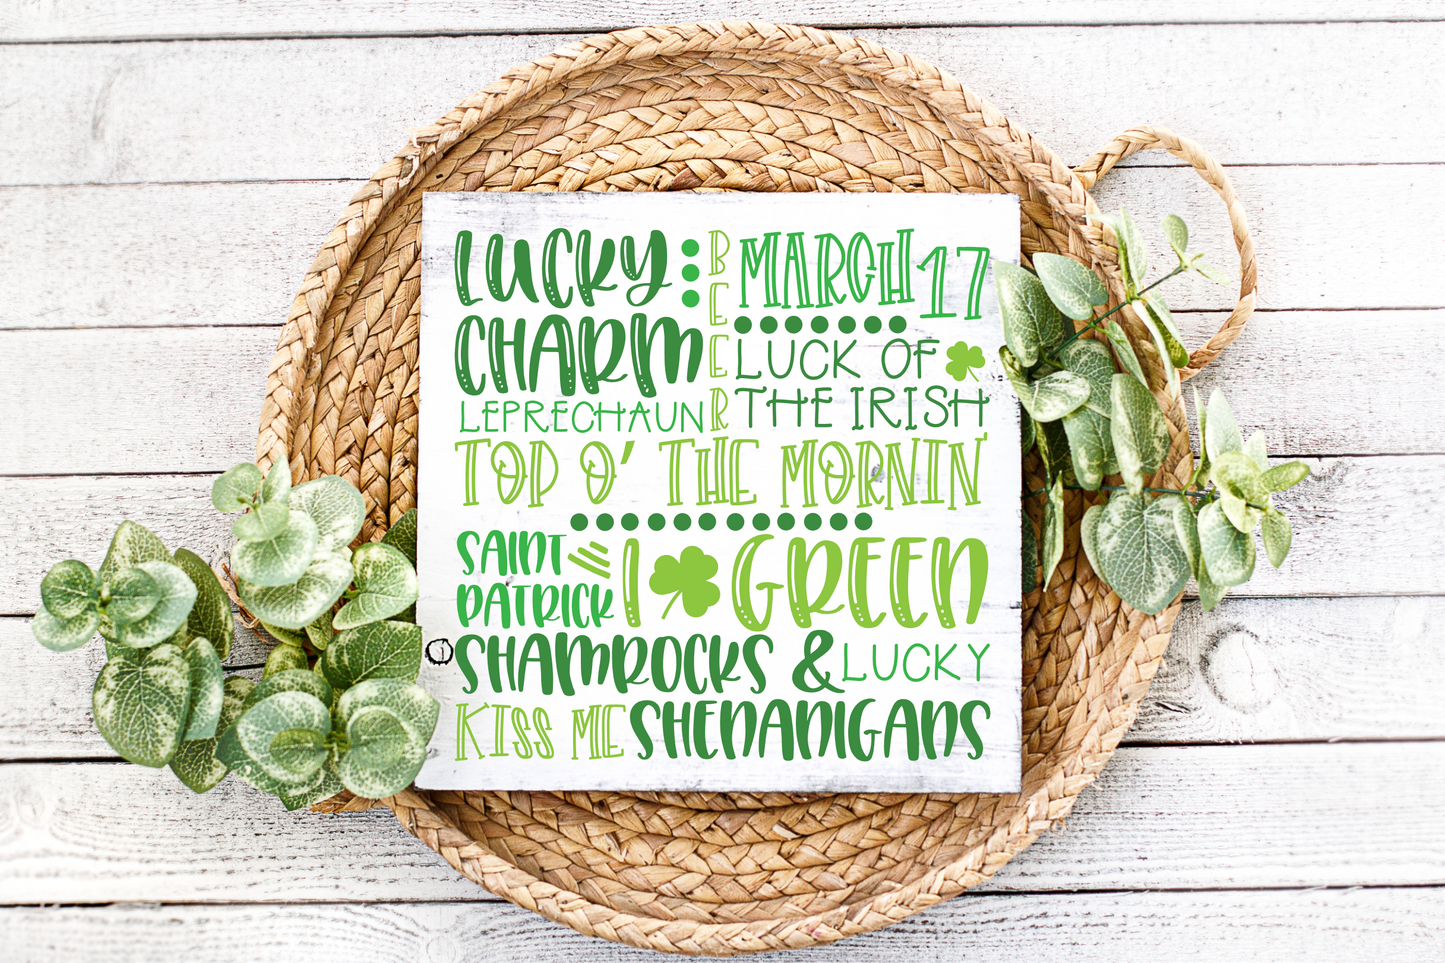 LUCKY
CHARM
LEPRECHAUN
BEER
MARCH 17
LUCK OF
THE IRISH
TOP O' THE MORNIN'
SAINT
PATRICK
I GREEN
SHAMROCKS & LUCKY
KISS ME SHENANIGANS